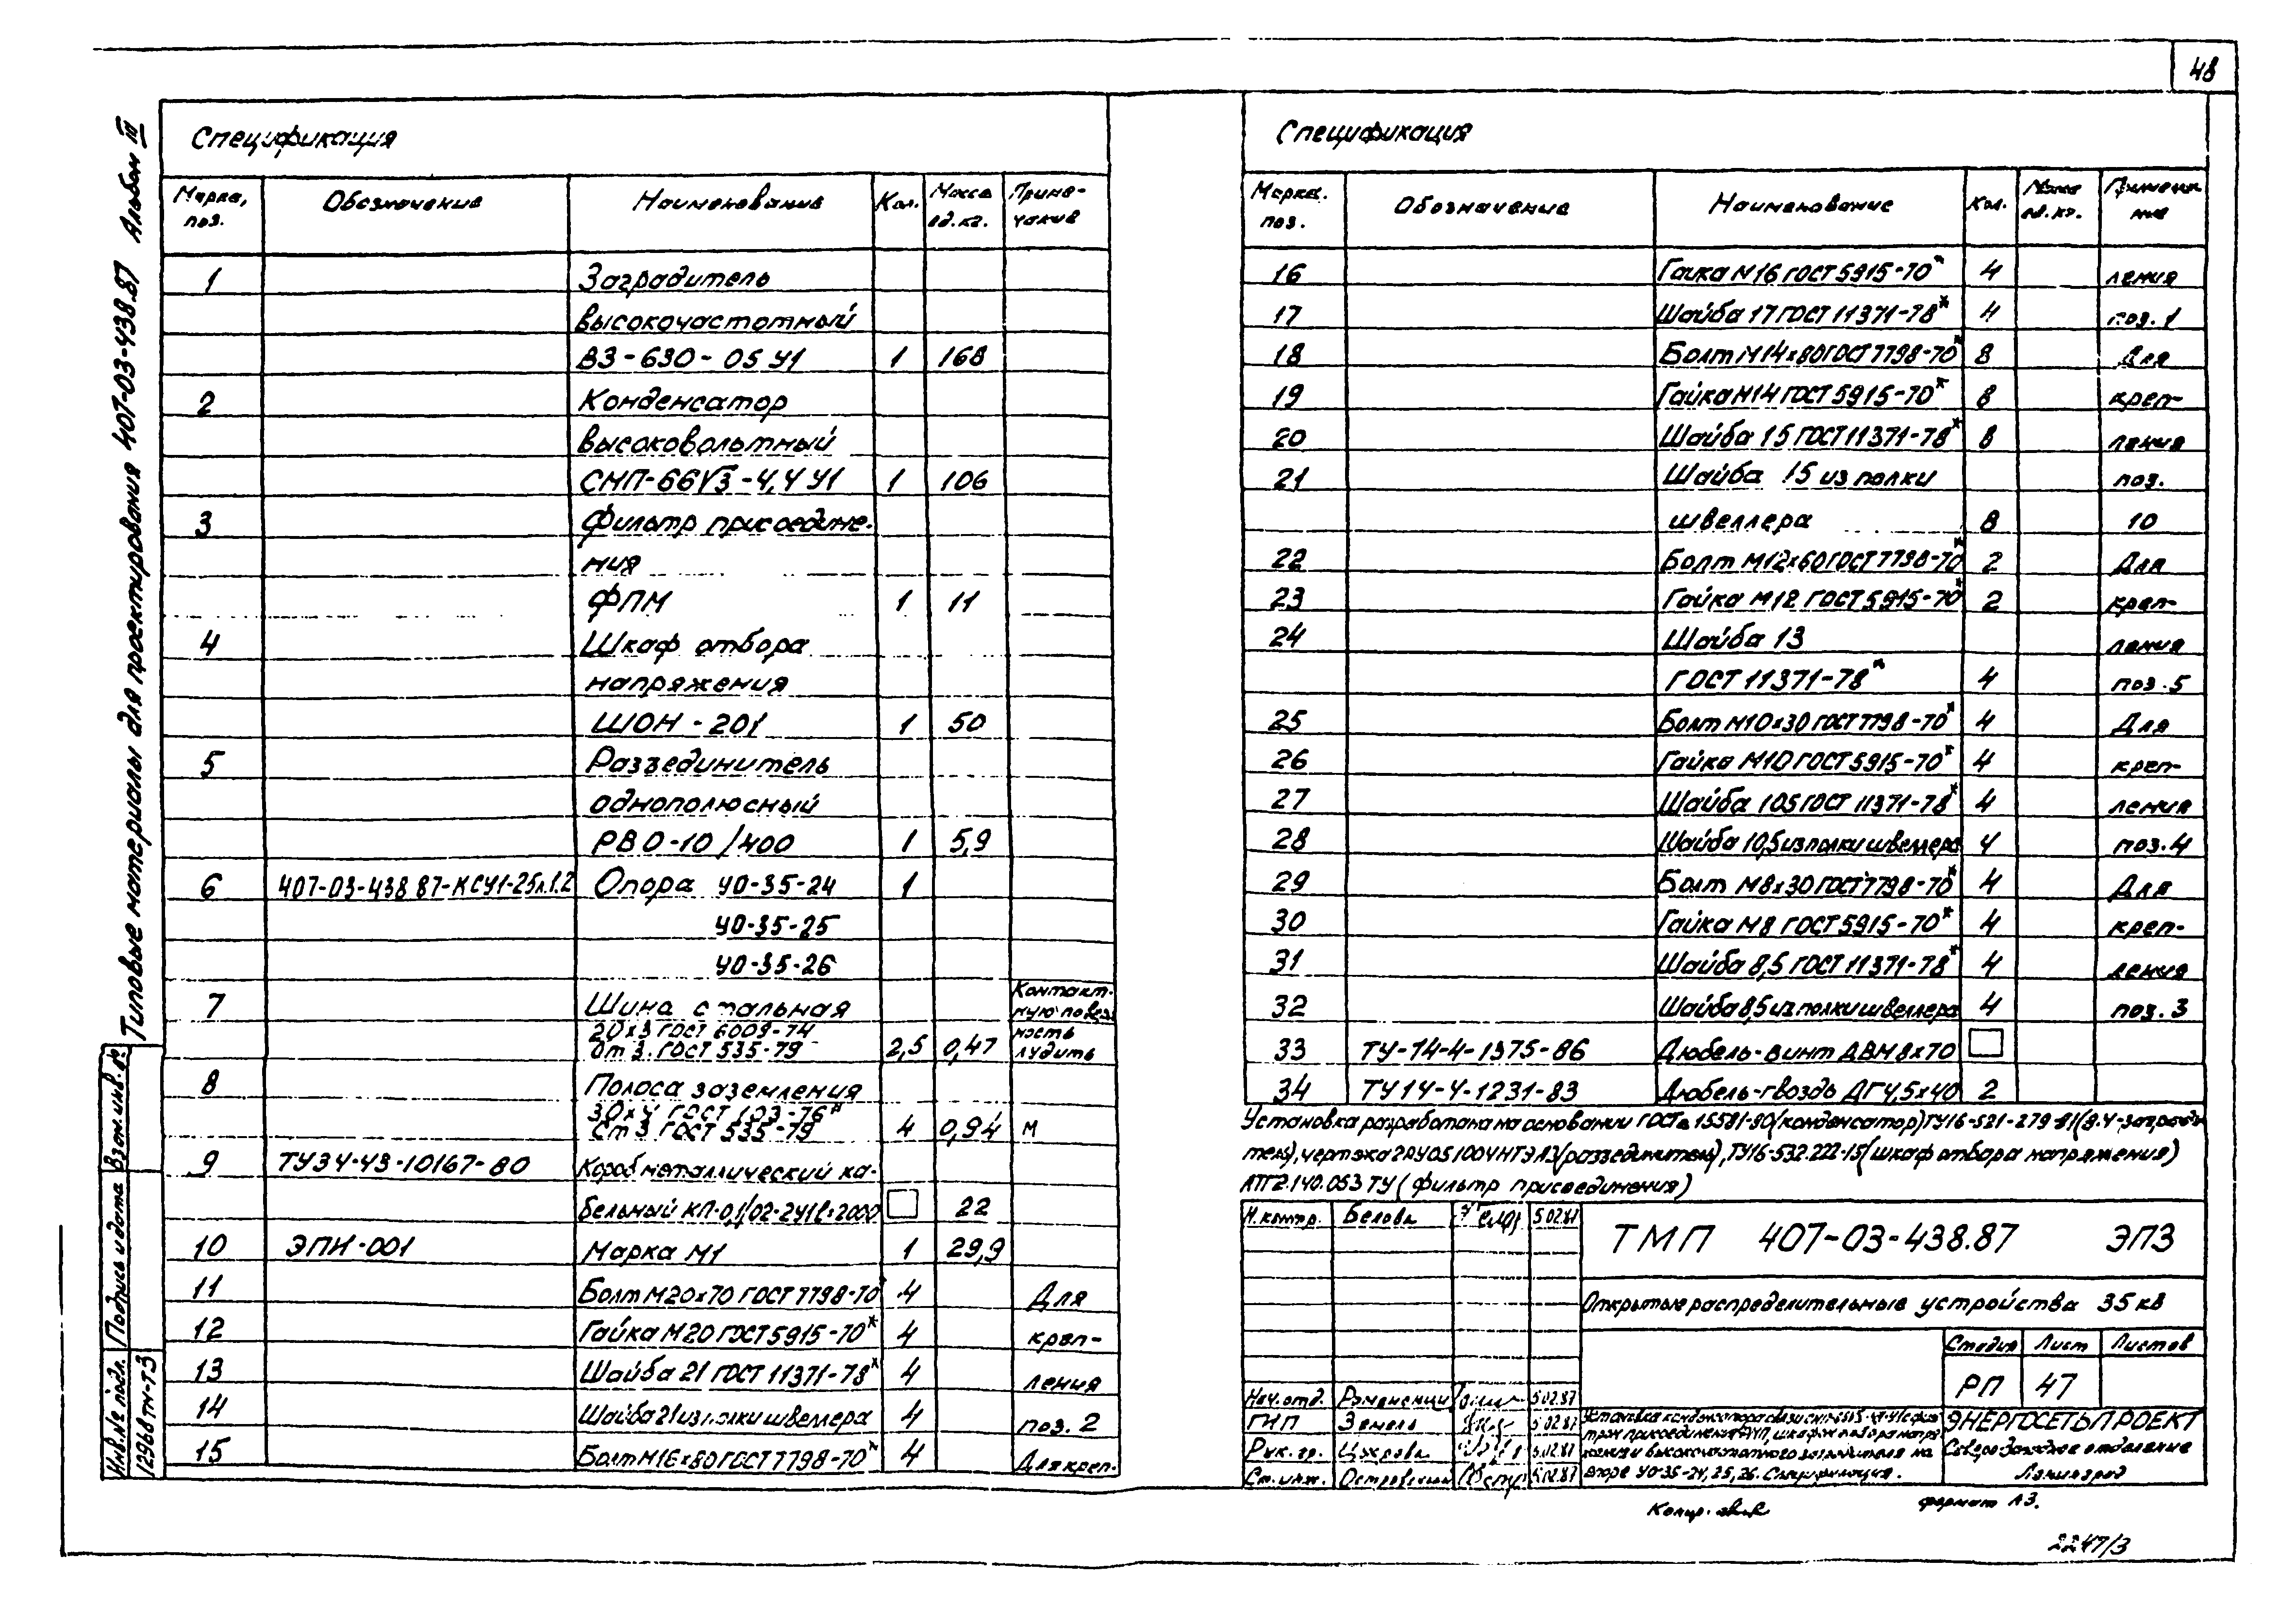 48
Типовые материалы для проектирования 407-03-438.87 Альбом III
Спецификация
Марка, поз. Обозначение Наименование Кол. Масса ед. кг. Примечание
1 Заградитель
высокочастотный
ВЗ-630-05 У1 1 168
2 Конденсатор
высоковольтный
СМП-66√3-4,4 У1 1 106
3 Фильтр присоедине-
ния
ФПМ 1 11
4 Шкаф отбора
напряжения
ШОН-201 1 50
5 Разъединитель
однополюсный
РВО-10/400 1 5,9
6 407-03-438.87-КСУ1-25л.1.2 Опора УО-35-24 1
УО-35-25
УО-35-26
7 Шина стальная Контакт-
20х3 ГОСТ 6009-74 ность
Ст 3 ГОСТ 535-79 2,5 0,47 лудить
8 Полоса заземления
30х4 ГОСТ 103-76*
Ст 3 ГОСТ 535-79 4 0,94 м
9 ТУ34-43-10167-80 Короб металлический ка-
бельный КП-0,1/02-2У1 ℓ=2000 □ 22
10 ЭПИ-001 Марка М1 1 29,9
11 Болт М20х70 ГОСТ 7798-70* 4 Для
12 Гайка М20 ГОСТ 5915-70* 4 креп-
13 Шайба 21 ГОСТ 11371-78* 4 ления
14 Шайба 21 из полки швеллера 4 поз. 2
15 Болт М16х80 ГОСТ 7798-70* 4 Для креп-
Взам. инв. №
Подпись и дата
Инв. № подл.
12968тм-т3
Спецификация
Марка. поз. Обозначение Наименование Кол. Масса ед. кг. Примечание
16 Гайка М16 ГОСТ 5915-70* 4 ления
17 Шайба 17 ГОСТ 11371-78* 4 поз. 1
18 Болт М14х80 ГОСТ 7798-70* 8 Для
19 Гайка М14 ГОСТ 5915-70* 8 креп-
20 Шайба 15 ГОСТ 11371-78* 8 ления
21 Шайба 15 из полки поз.
швеллера 8 10
22 Болт М12х60 ГОСТ 7798-70* 2 Для
23 Гайка М12 ГОСТ 5915-70* 2 креп-
24 Шайба 13 ления
ГОСТ 11371-78* 4 поз. 5
25 Болт М10х30 ГОСТ 7798-70* 4 Для
26 Гайка М10 ГОСТ 5915-70* 4 креп-
27 Шайба 105 ГОСТ 11371-78* 4 ления
28 Шайба 10,5 из полки швеллера 4 поз. 4
29 Болт М8х30 ГОСТ 7798-70* 4 Для
30 Гайка М8 ГОСТ 5915-70* 4 креп-
31 Шайба 8,5 ГОСТ 11371-78* 4 ления
32 Шайба 8,5 из полки швеллера 4 поз. 3
33 ТУ-14-4-1375-86 Дюбель-винт ДВМ 8х70 □
34 ТУ 14-4-1231-83 Дюбель-гвоздь ДГ 4,5х40 2
Установка разработана на основании ГОСТа 15581-80 (конденсатор) ТУ16-521-279-81 (В.Ч-загради
тель), чертежа (разъединитель), ТУ16-532.222-15 (шкаф отбора напряжения)
ЛТГ2.140.053 ТУ (фильтр присоединения)
Н. контр. Белова 5.02.87
ТМП 407-03-438.87 ЭПЗ
Открытые распределительные устройства 35 кв
Стадия Лист Листов
РП 47
Нач. отд. 5.02.87
ГИП Земель 5.02.87
Рук. гр. 5.02.87
Ст. инж. 5.02.87
Установка конденсатора связи с фильт-
тром присоединения ФПМ, шкафом отбора напря
жения и высокочастотного заградителя на
опоре УО-35-24, 25, 26. Спецификация.
ЭНЕРГОСЕТЬПРОЕКТ
Северо-Западное отделение
Ленинград
Копир.
формат А3.
2247/3